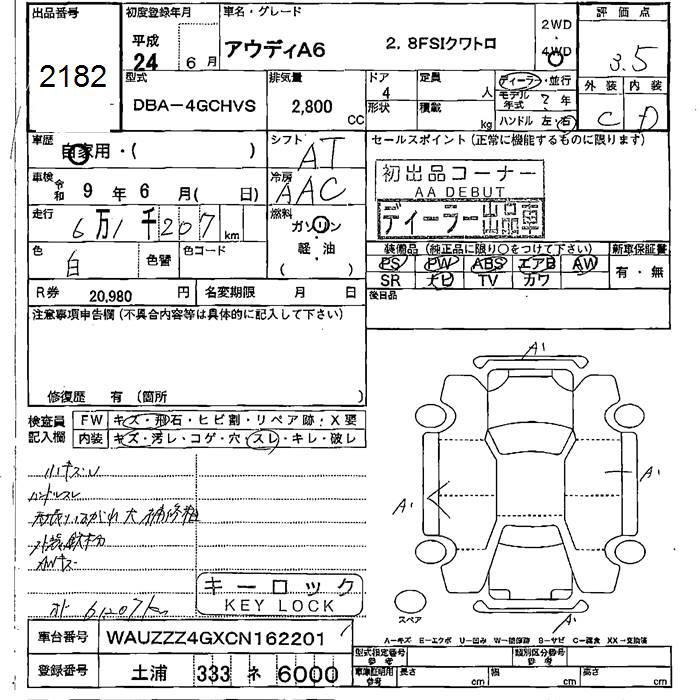 出品番号
2182
初度登録年月
平成
24 6 月
車名・グレード
アウディA6 2.8FSIクワトロ
2WD
4WD
評価点
3.5
外装 内装
C D
型式
DBA-4GCHVS
排気量
2,800 CC
ドア
4
定員
人
形状
積載
kg
ディーラー・並行
モデル年式 年
ハンドル 左・右
車歴
自家用・( )
シフト
AT
セールスポイント (正常に機能するものに限ります)
初出品コーナー
AA DEBUT
ディーラー出品車
車検
令和 9 年 6 月( 日)
冷房
AAC
走行
6万1千207 km
燃料
ガソリン
軽・油
( )
色
白
色替
色コード
装備品 (純正品に限り○をつけて下さい)
新車保証書
PS PW ABS エアB AW
SR ナビ TV カワ
有・無
R券 20,980 円
名変期限 月 日
後日品
注意事項申告欄 (不具合内容等は具体的に記入して下さい)
修復歴 有 (箇所 )
検査員
記入欄
FW キズ・飛石・ヒビ割・リペア跡・X要
内装 キズ・汚レ・コゲ・穴・スレ・キレ・破レ
小キズ
ハンドルスレ
外装鉄粉
AWキズ
61207km
キーロック
KEY LOCK
A1
A1
A1
A1
スペア
A-キズ E-エクボ U-凹み W-補修跡 S-サビ C-腐食 XX-交換済
車台番号 WAUZZZ4GXCN162201
登録番号 土浦 333 ネ 6000
型式指定番号 参考
類別区分番号 参考
車庫証明用 参考 長さ cm 幅 cm 高さ cm